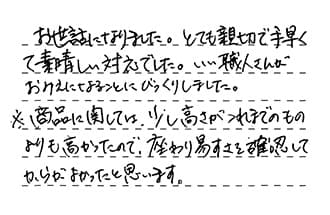 お世話になりました。とても親切で手早く
て素晴しい対応でした。いい職人さんが
おみえになることにびっくりしました。
※商品に関しては、少し高さがこれまでのもの
よりも高かったので、座わり易すさを確認して
からがよかったと思います。